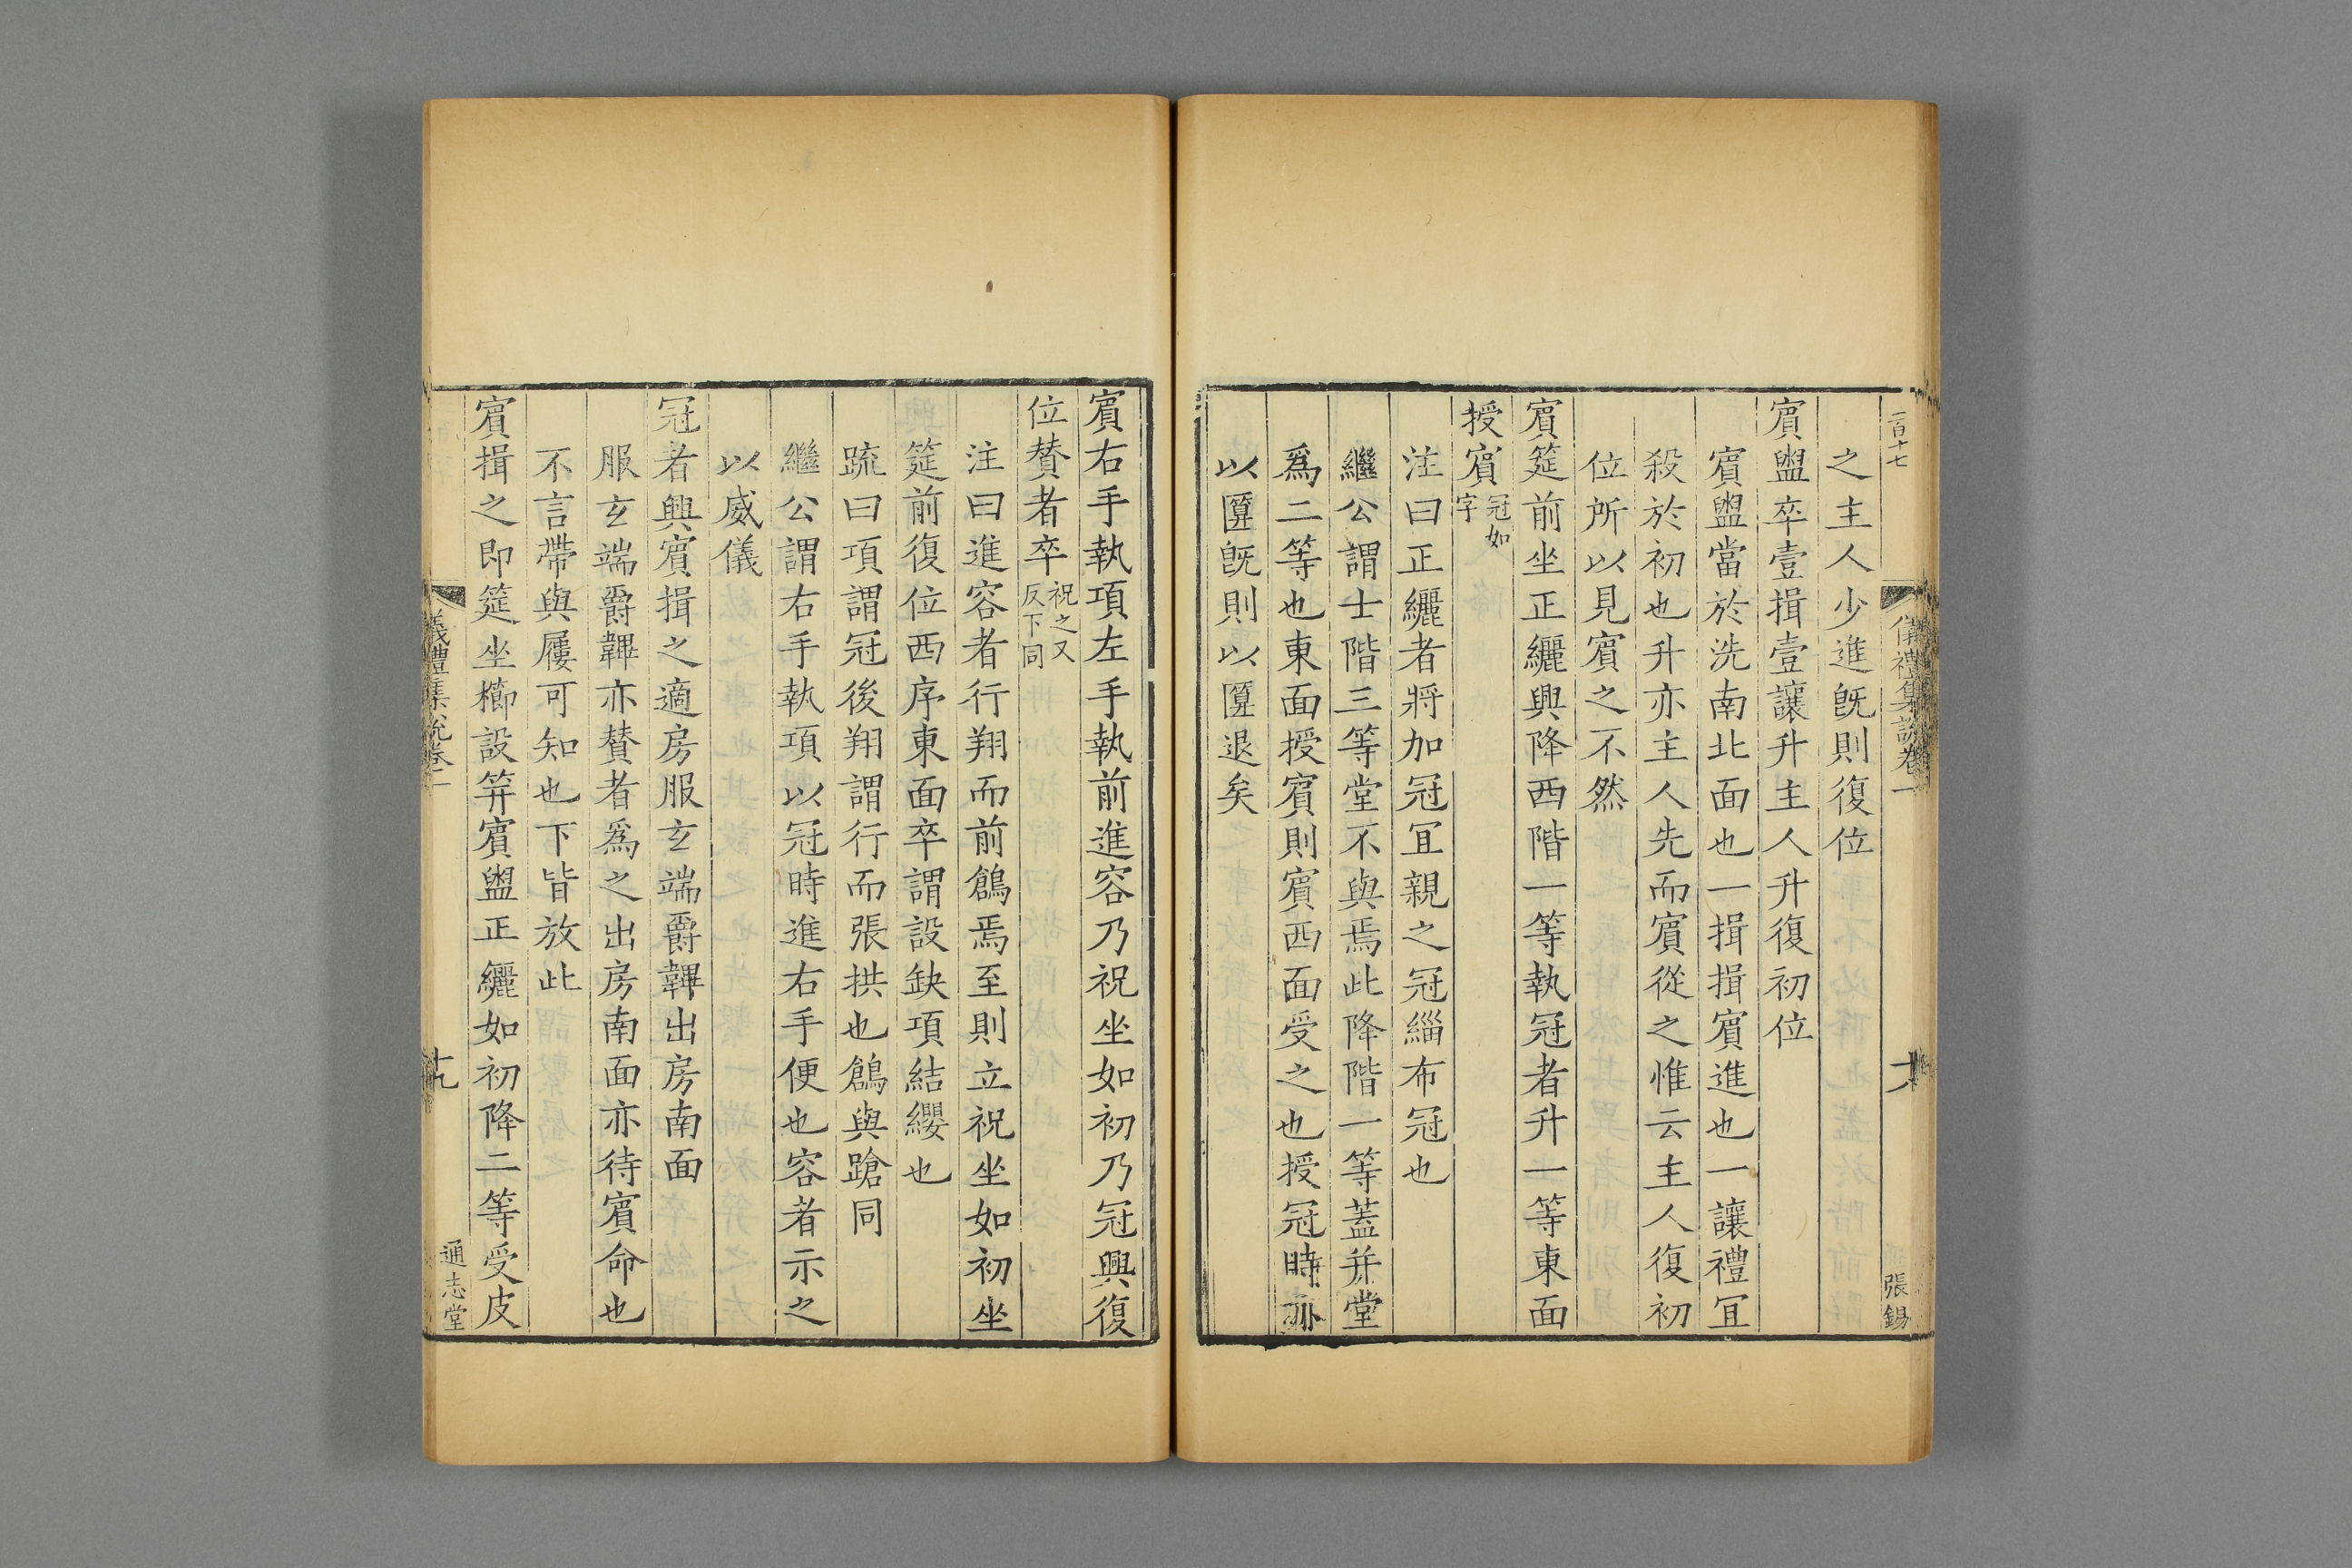 二百十七
儀禮集說卷一
張錫
之主人少進旣則復位
賓盥卒壹揖壹讓升主人升復初位
賓盥當於洗南北面也一揖揖賓進也一讓禮宜
殺於初也升亦主人先而賓從之惟云主人復初
位所以見賓之不然
賓筵前坐正纚興降西階一等執冠者升一等東面
授賓冠如字
注曰正纚者將加冠宜親之冠緇布冠也
繼公謂士階三等堂不與焉此降階一等蓋并堂
爲二等也東面授賓則賓西面受之也授冠時亦
以匴旣則以匴退矣
賓右手執項左手執前進容乃祝坐如初乃冠興復
位贊者卒祝之又反下同
注曰進容者行翔而前鶬焉至則立祝坐如初坐
筵前復位西序東面卒謂設缺項結纓也
疏曰項謂冠後翔謂行而張拱也鶬與蹌同
繼公謂右手執項以冠時進右手便也容者示之
以威儀
冠者興賓揖之適房服玄端爵韠出房南面
服玄端爵韠亦贊者爲之出房南面亦待賓命也
不言帶與屨可知也下皆放此
賓揖之即筵坐櫛設笄賓盥正纚如初降二等受皮
儀禮集說卷一
十九
通志堂